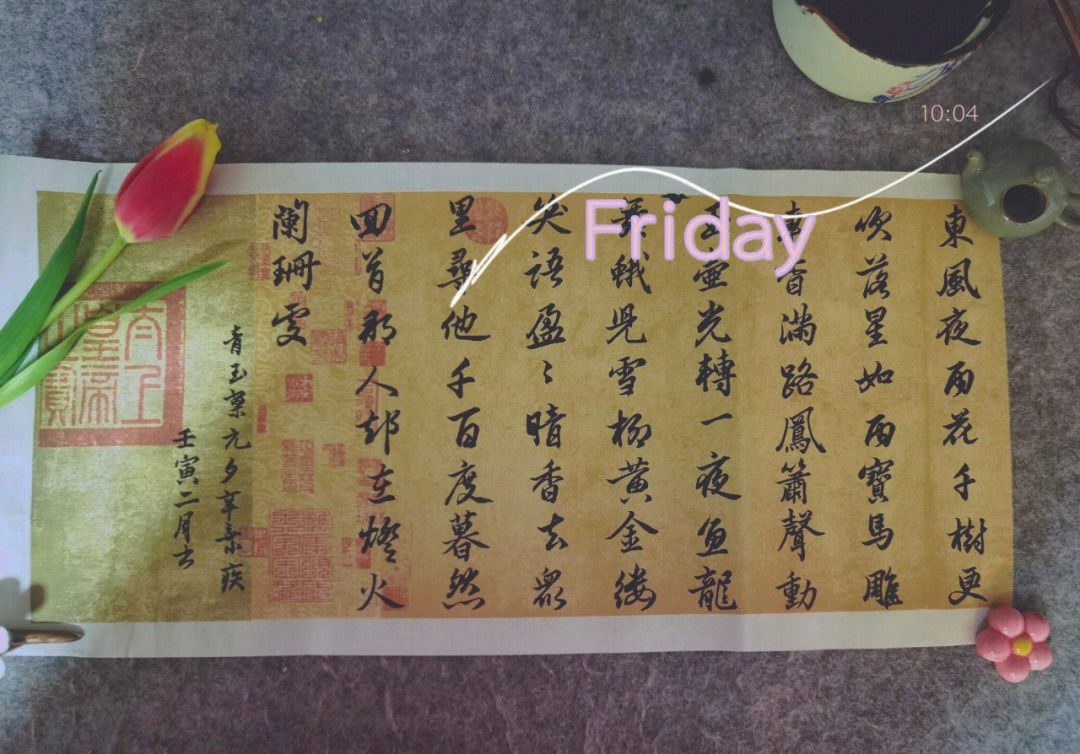 10:04
Friday
東風夜雨花千樹更
吹落星如雨寶馬雕
香滿路鳳簫聲動
壺光轉一夜魚龍
蛾兒雪柳黃金縷
笑語盈〻暗香去衆
里尋他千百度暮然
回首那人却在燈火
蘭珊處
青玉案元夕辛棄疾
壬寅二月書
太上皇帝之寶